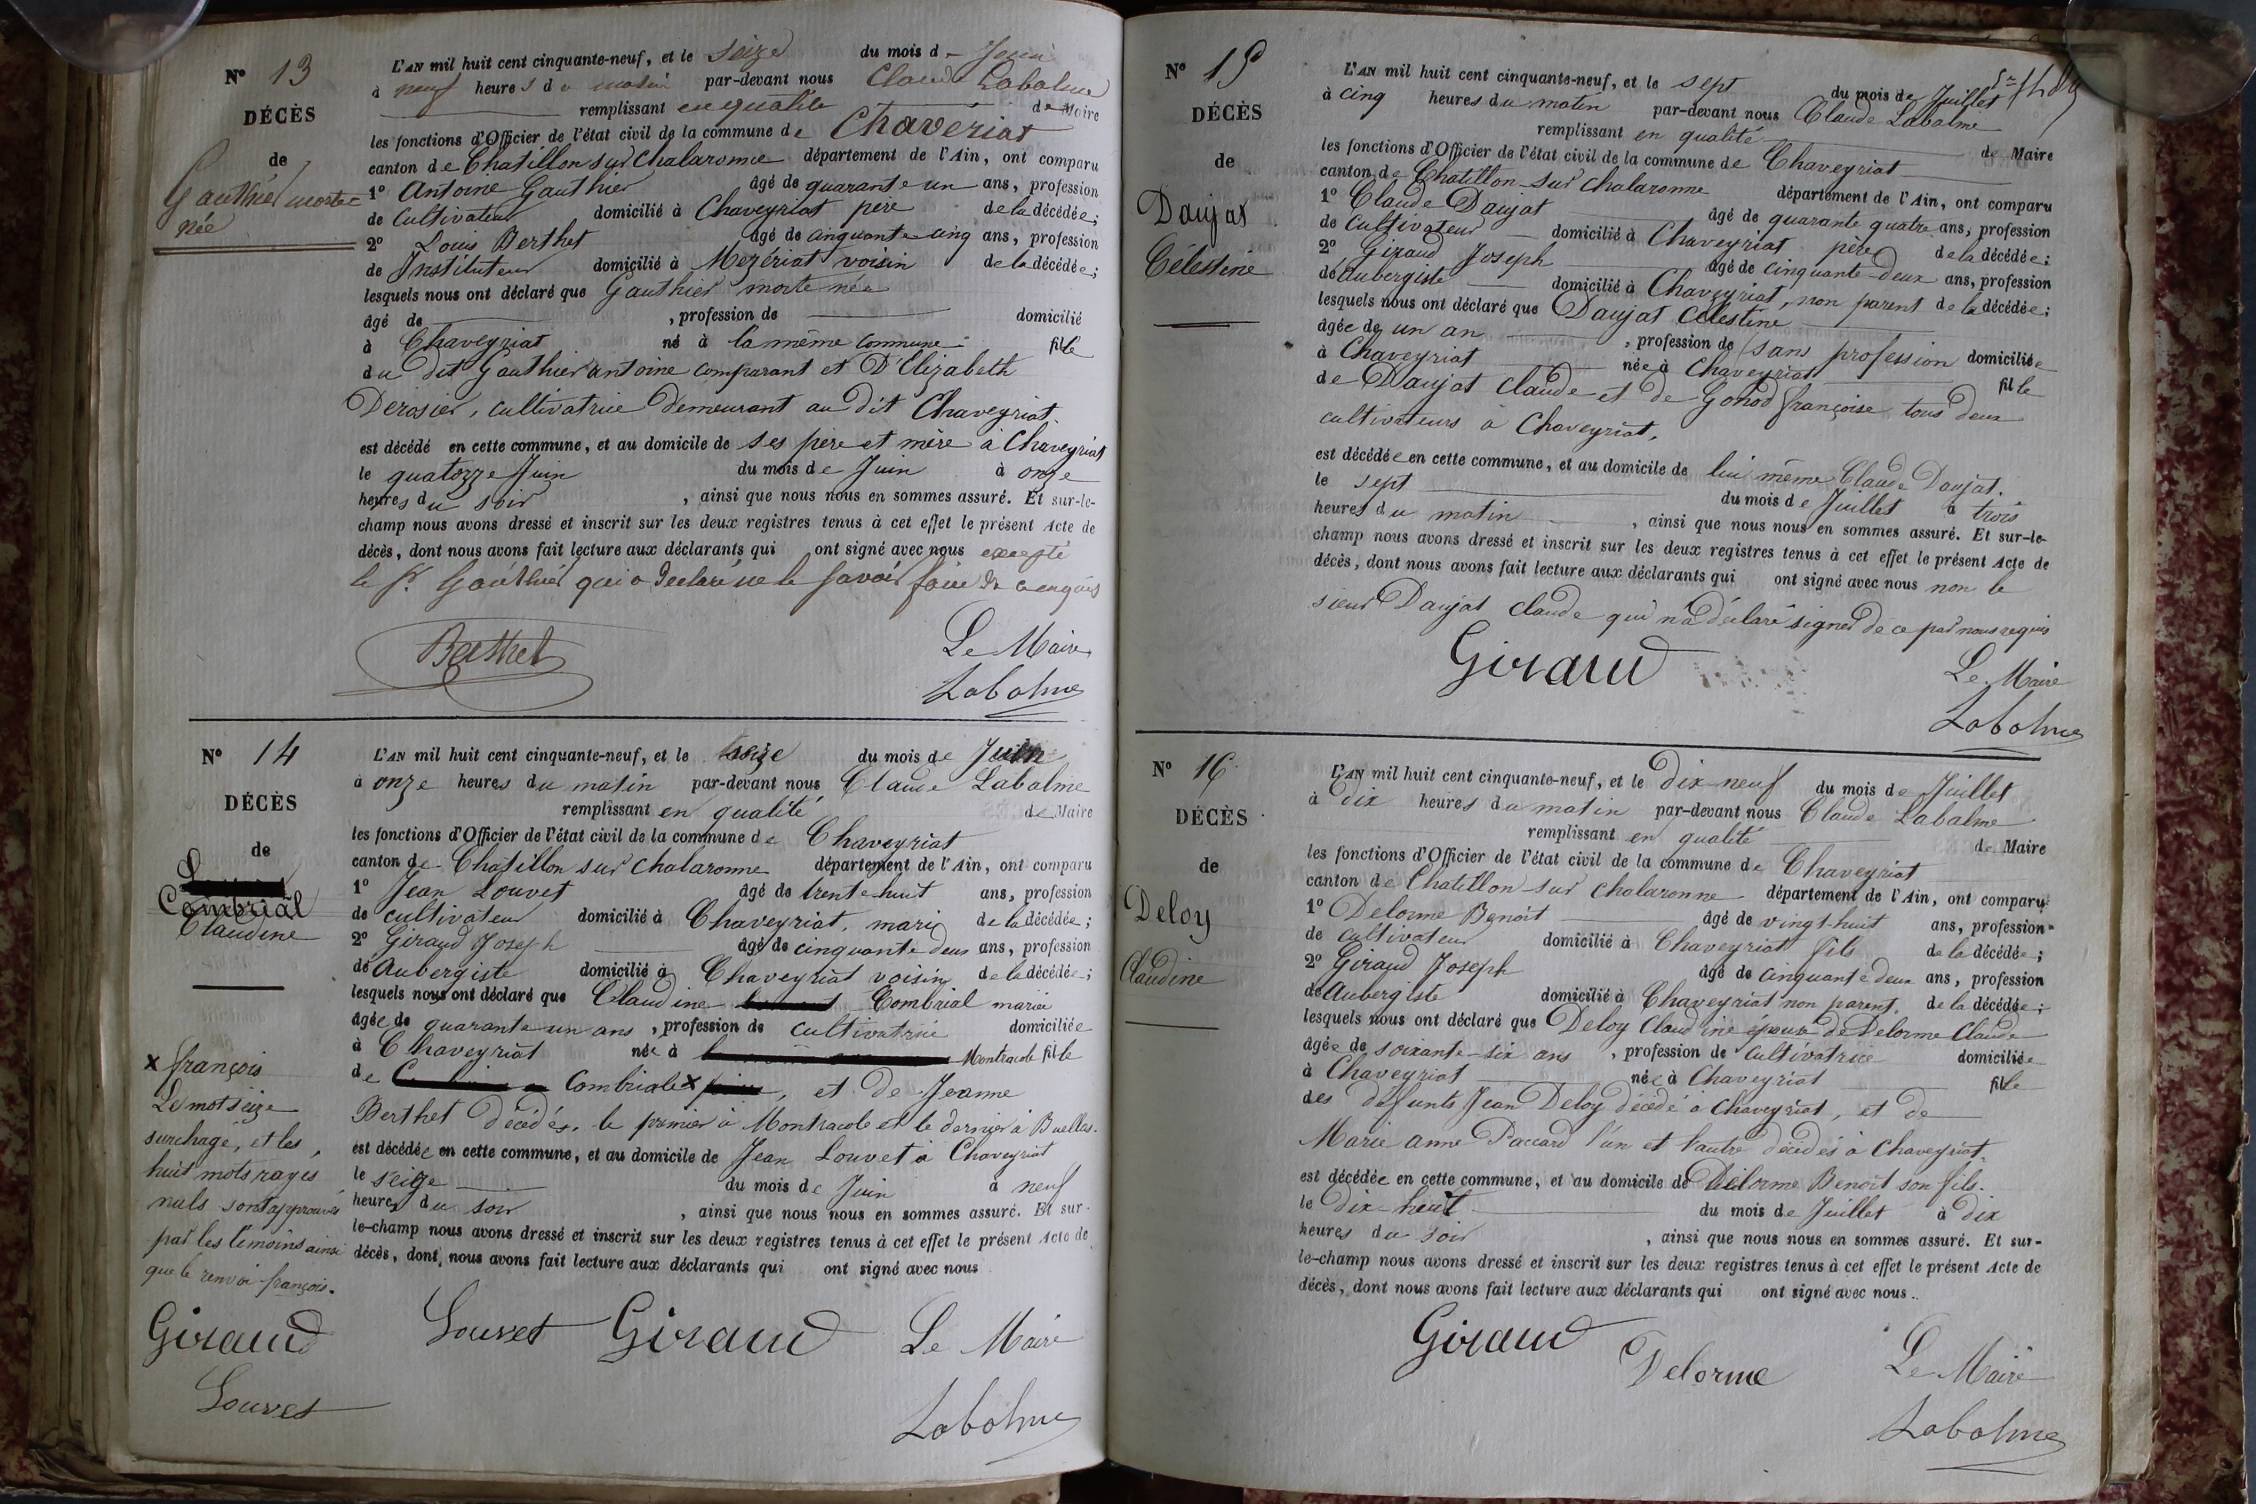 N° 13
DÉCÈS
de
Gauthier morte-
née
L'AN mil huit cent cinquante-neuf, et le seize du mois d Juin
à neuf heures du matin par-devant nous Claude Labalme
remplissant en qualité de Maire
les fonctions d'Officier de l'état civil de la commune de Chaveriat
canton de Chatillon sur Chalaronne département de l'Ain, ont comparu
1° Antoine Gauthier âgé de quarante un ans, profession
de cultivateur domicilié à Chaveyriat père de la décédée;
2° Louis Berthet âgé de cinquante cinq ans, profession
de Instituteur domicilié à Mezériat voisin de la décédée;
lesquels nous ont déclaré que Gauthier morte née
âgé de , profession de domicilié
à Chaveyriat né à la même commune fille
du dit Gauthier antoine comparant et D'Elizabeth
Derosier, cultivatrice demeurant au dit Chaveyriat.
est décédé en cette commune, et au domicile de ses père et mère à Chaveyriat
le quatorze Juin du mois de Juin à onze
heures du soir , ainsi que nous nous en sommes assuré. Et sur-le-
champ nous avons dressé et inscrit sur les deux registres tenus à cet effet le présent Acte de
décès, dont nous avons fait lecture aux déclarants qui ont signé avec nous excepté
le Sr. Gauthier qui a déclaré ne le savoir faire de ce enquis
Berthet
Le Maire
Labalme
N° 14
DÉCÈS
de
Combrial
Claudine
L'AN mil huit cent cinquante-neuf, et le seize du mois de Juin
à onze heures du matin par-devant nous Claude Labalme
remplissant en qualité de Maire
les fonctions d'Officier de l'état civil de la commune de Chaveyriat
canton de Chatillon sur Chalaronne département de l'Ain, ont comparu
1° Jean Louvet âgé de trente-huit ans, profession
de cultivateur domicilié à Chaveyriat, mari de la décédée;
2° Giraud Joseph âgé de cinquante deux ans, profession
de Aubergiste domicilié à Chaveyriat voisin de la décédée;
lesquels nous ont déclaré que Claudine Combrial mariée
âgée de quarante un ans, profession de cultivatrice domiciliée
à Chaveyriat née à Montracole fille
de Combriale x , et de Jeanne
Berthet décédés, le premier à Montracole et le dernier à Buellas.
est décédée en cette commune, et au domicile de Jean Louvet à Chaveyriat
le seize du mois de Juin à neuf
heures du soir , ainsi que nous nous en sommes assuré. Et sur-
le-champ nous avons dressé et inscrit sur les deux registres tenus à cet effet le présent Acte de
décès, dont nous avons fait lecture aux déclarants qui ont signé avec nous
x françois
Le mot seize
surchagé, et les
huit mots rayés
nuls sont approuvés
par les témoins ainsi
que le renvoi françois.
Giraud
Louvet
Louvet Giraud Le Maire
Labalme
N° 15
DÉCÈS
de
Daujat
Célestine
L'AN mil huit cent cinquante-neuf, et le sept du mois de Juillet
à cinq heures du matin par-devant nous Claude Labalme
remplissant en qualité de Maire
les fonctions d'Officier de l'état civil de la commune de Chaveyriat
canton de Chatillon-sur Chalaronne département de l'Ain, ont comparu
1° Claude Daujat âgé de quarante quatre ans, profession
de cultivateur domicilié à Chaveyriat père de la décédée;
2° Giraud Joseph âgé de cinquante-deux ans, profession
de Aubergiste domicilié à Chaveyriat, non parent de la décédée;
lesquels nous ont déclaré que Daujat Célestine
âgée de un an , profession de sans profession domiciliée
à Chaveyriat née à Chaveyriat fille
de Daujat claude et de Gonod françoise tous deux
cultivateurs à Chaveyriat.
est décédée en cette commune, et au domicile de lui même Claude Daujat.
le sept du mois de Juillet à trois
heures du matin , ainsi que nous nous en sommes assuré. Et sur-le-
champ nous avons dressé et inscrit sur les deux registres tenus à cet effet le présent Acte de
décès, dont nous avons fait lecture aux déclarants qui ont signé avec nous non le
sieur Daujat claude qui n'a déclaré signer de ce par nous requis
Giraud
Le Maire
Labalme
N° 16
DÉCÈS
de
Deloy
Claudine
L'AN mil huit cent cinquante-neuf, et le dix-neuf du mois de Juillet
à dix heures du matin par-devant nous Claude Labalme
remplissant en qualité de Maire
les fonctions d'Officier de l'état civil de la commune de Chaveyriat
canton de Chatillon sur Chalaronne département de l'Ain, ont comparu
1° Delorme Benoît âgé de vingt-huit ans, profession
de cultivateur domicilié à Chaveyriat fils de la décédée;
2° Giraud Joseph âgé de cinquante deux ans, profession
de Aubergiste domicilié à Chaveyriat non parent, de la décédée;
lesquels nous ont déclaré que Deloy Claudine épouse de Delorme Claude
âgée de soixante-six ans , profession de cultivatrice domiciliée
à Chaveyriat née à Chaveyriat fille
des défunts Jean Deloy décédé à Chaveyriat, et de
Marie anne Paccard l'un et l'autre décédés à Chaveyriat.
est décédée en cette commune, et au domicile de Delorme Benoît son fils.
le dix-huit du mois de Juillet à dix
heures du soir , ainsi que nous nous en sommes assuré. Et sur-
le-champ nous avons dressé et inscrit sur les deux registres tenus à cet effet le présent Acte de
décès, dont nous avons fait lecture aux déclarants qui ont signé avec nous.
Giraud
Delorme
Le Maire
Labalme